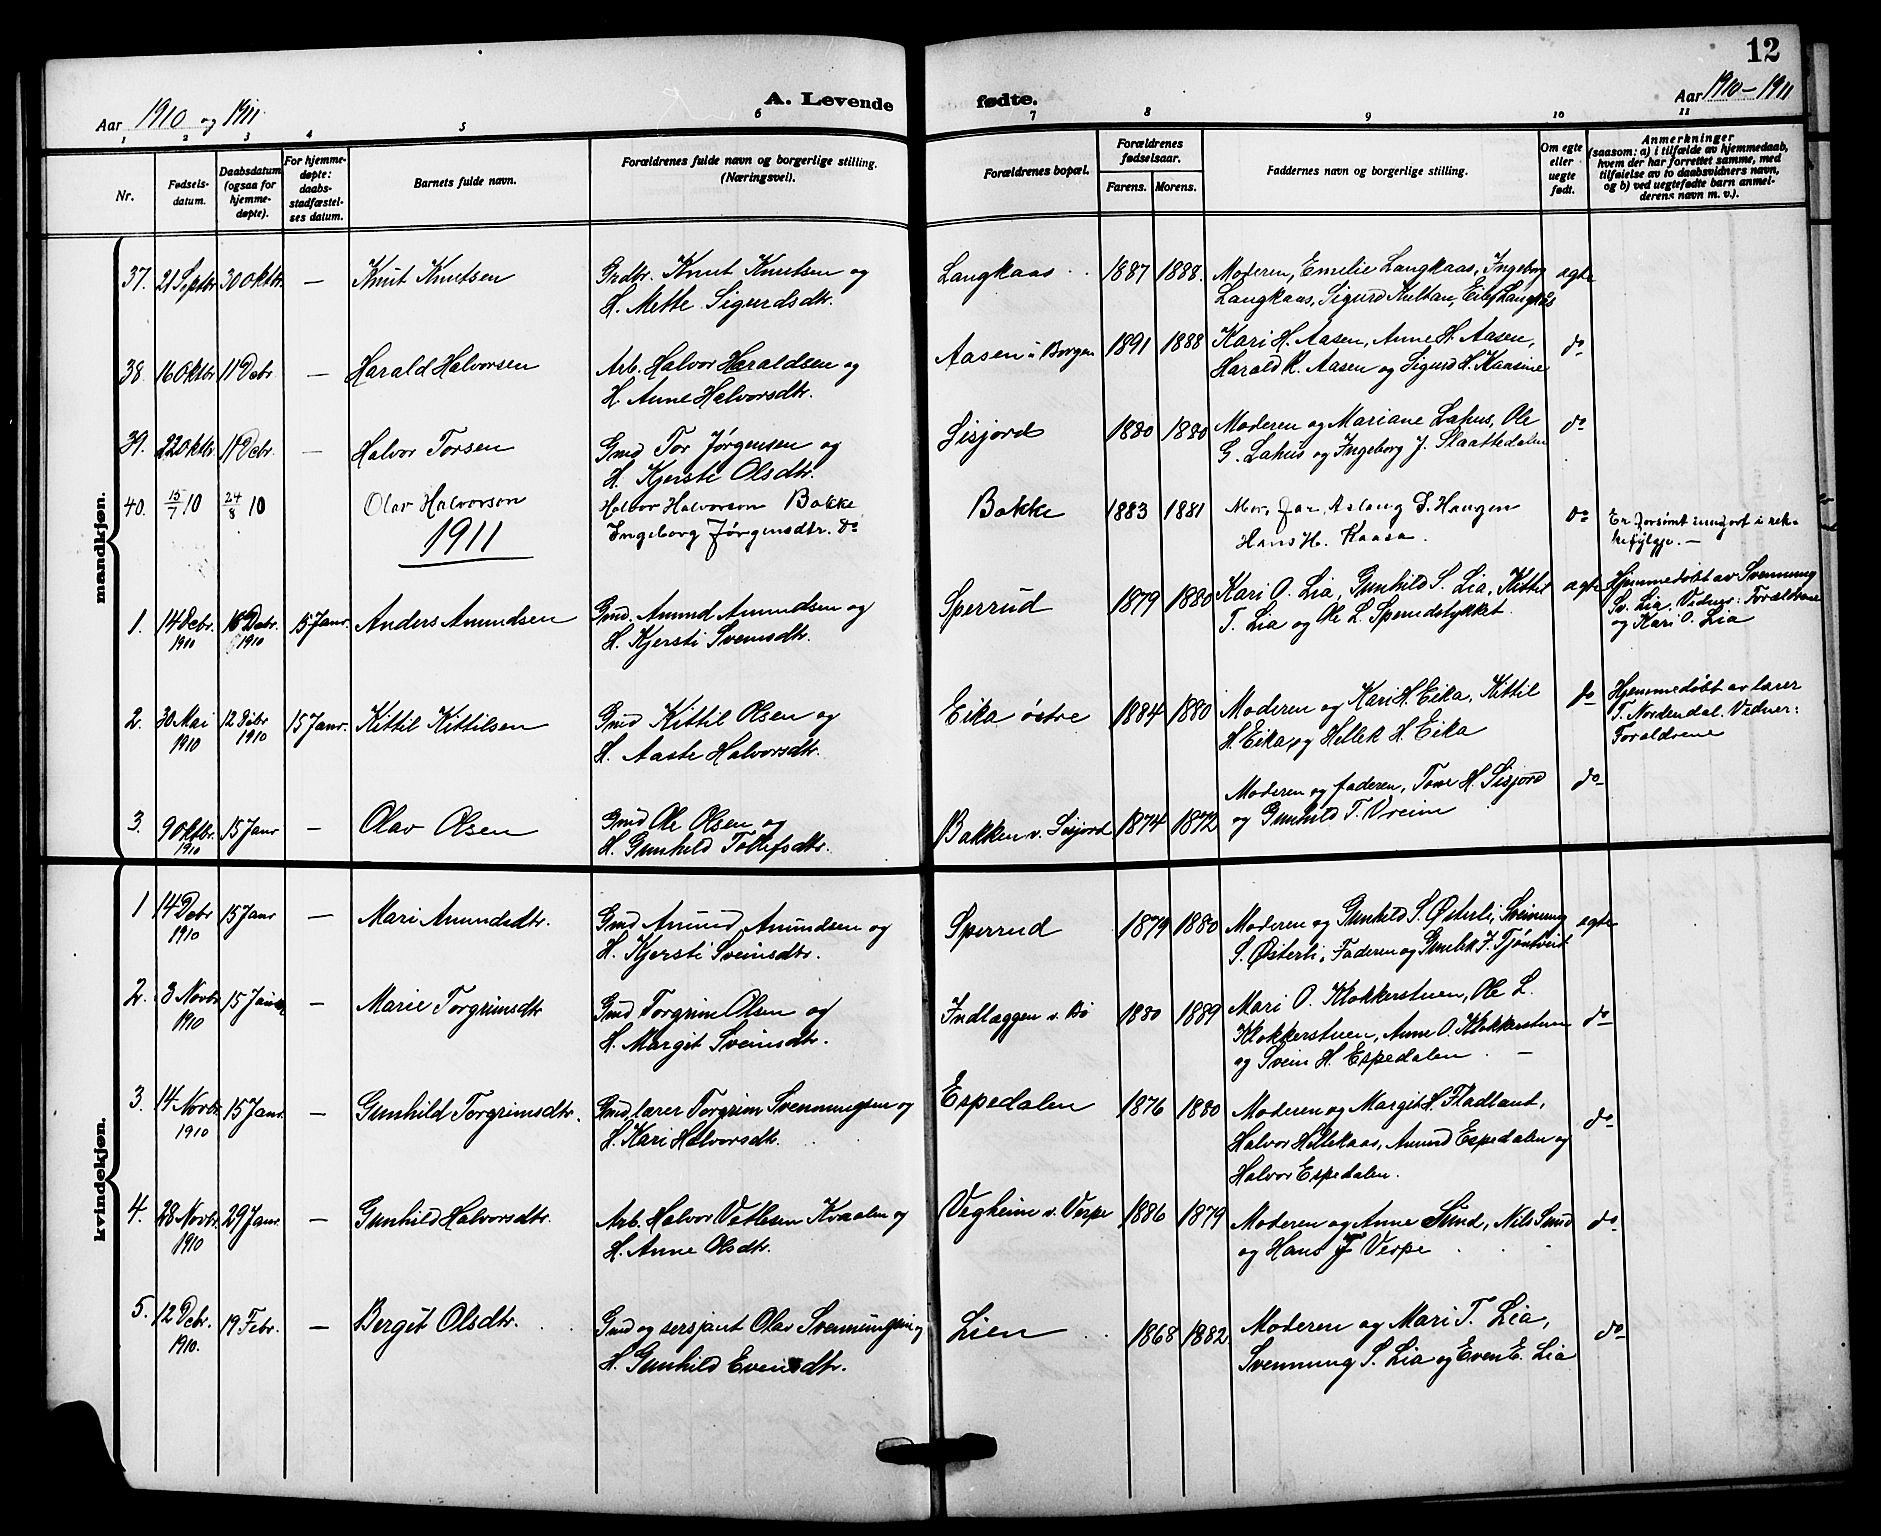 12
Aar 1910 og 1911
A. Levende fødte.
Aar 1910-1911
1 2 3 4 5 6 7 8 9 10 11
Nr.
Fødsels-
datum.
Daabsdatum
(ogsaa for
hjemme-
døpte).
For hjemme-
døpte:
daabs-
stadfæstel-
ses datum.
Barnets fulde navn.
Forældrenes fulde navn og borgerlige stilling.
(Næringsvei).
Forældrenes bopæl.
Forældrenes
fødselsaar.
Farens. Morens.
Faddernes navn og borgerlige stilling.
Om egte
eller
uegte
født.
Anmerkninger
(saasom: a) i tilfælde av hjemmedaab,
hvem der har forrettet samme, med
tilføielse av to daabsvidners navn,
og b) ved uegtefødte barn anmel-
derens navn m. v.).
mandkjøn.
37. 21 Septbr 30 oktbr. — Knut Knutsen Grdbr. Knut Knutsen og Langkaas 1887 1888. Moderen, Emelie Langkaas, Ingeborg ægte
H. Mette Sigurdsdtr. Langkaas, Sigurd Kultan, Eilef Langkås
38. 16 Oktbr 11 Debr — Harald Halvorsen Arb. Halvor Haraldsen og Aasen i Borgen 1891 1888 Kari H. Aasen, Anne H. Aasen, do
H. Anne Halvorsdtr. Harald K. Aasen og Sigurd H. Kaasine
39. 22 oktbr 11 Debr. — Halvor Torsen Gmd Tor Jørgensen og Sisjord 1880 1880 Moderen og Mariane Lahus, Ole do
H. Kjersti Olsdtr. G. Lahus og Ingeborg J. Slaattedalen
40. 15/7 10 24/8 10 Olav Halvorson Halvor Halvorson Bakke Bakke 1883 1881 Mor, far, Aslaug S. Haugen do Er forsømt inngjort i rek-
Ingeborg Jørgensdtr. do Hans H. Kaasa. kefylgje. —
1911
1. 14 Debr. 1910 16 Debr. 1910 15 Janr. Anders Amundsen Gmd. Amund Amundsen og Sperrud 1879 1880 Kari O. Lia, Gunhild S. Lia, Kittil ægte Hjemmedøbt av Svennung
H. Kjersti Sveinsdtr. T. Lia og Ole L. Sperudstykket. Sv. Lia. Vidner: Forældrene
og Kari O. Lia
2. 30 Mai 1910 12 1910 15 Janr. Kittil Kittilsen Gmd Kittil Olsen og Eika østre 1884 1880 Moderen og Kari H. Eika, Kittil do Hjemmedøbt av lærer
H. Aaste Halvorsdtr. H. Eika og Hellek H. Eika T. Nordendal. Vidner:
Forældrene
3. 9 Oktbr. 1910 15 Janr — Olav Olsen Gmd Ole Olsen og Bakken v. Sisjord 1874 1872 Moderen og faderen, Tone H. Sisjord do
H. Gunhild Tollefsdtr. og Gunhild T. Vreim
kvindekjøn.
1 14 Debr 1910 15 Janr — Mari Amundsdtr. Gmd Amund Amundsen og Sperrud 1879 1880 Moderen og Gunhild S. Østerli, Sveinung ægte
H. Kjersti Sveinsdtr. S. Østerli, Faderen og Gunlek J. Tjøntveit
2. 3 Novbr 1910 15 Januar — Marie Torgrimsdtr Gmd Torgrim Olsen og Indlæggen v. Bø 1880 1889 Mari O. Klokkerstuen, Ole L. do
H. Margit Sveinsdtr. Klokkerstuen, Anne O. Klokkerstuen
og Svein H. Espedalen. —
3. 14 Novbr 1910 15 Janr. — Gunhild Torgrimsdtr. Gmd, lærer Torgrim Svennungsen og Espedalen 1876 1880 Moderen og Margit H. Fladland, do
H. Kari Halvorsdtr. Halvor Hellekaas, Amund Espedalen og
Halvor Espedalen.
4. 28 Novbr. 1910 29 Janr. — Gunhild Halvorsdtr. Arb. Halvor Vetlesen Kvaalen og Vegheim v. Verpe 1886 1879 Moderen og Anne Sund, Nils Sund do
H. Anne Olsdtr. og Hans J Verpe
5. 12 Debr. 1910. 19 Febr. — Bergit Olsdtr. Gmd og sersjant Olav Svennungsen og Lien 1868 1882 Moderen og Mari T. Lia, do
H. Gunhild Evensdtr. Svennung S. Lia og Even E. Lia